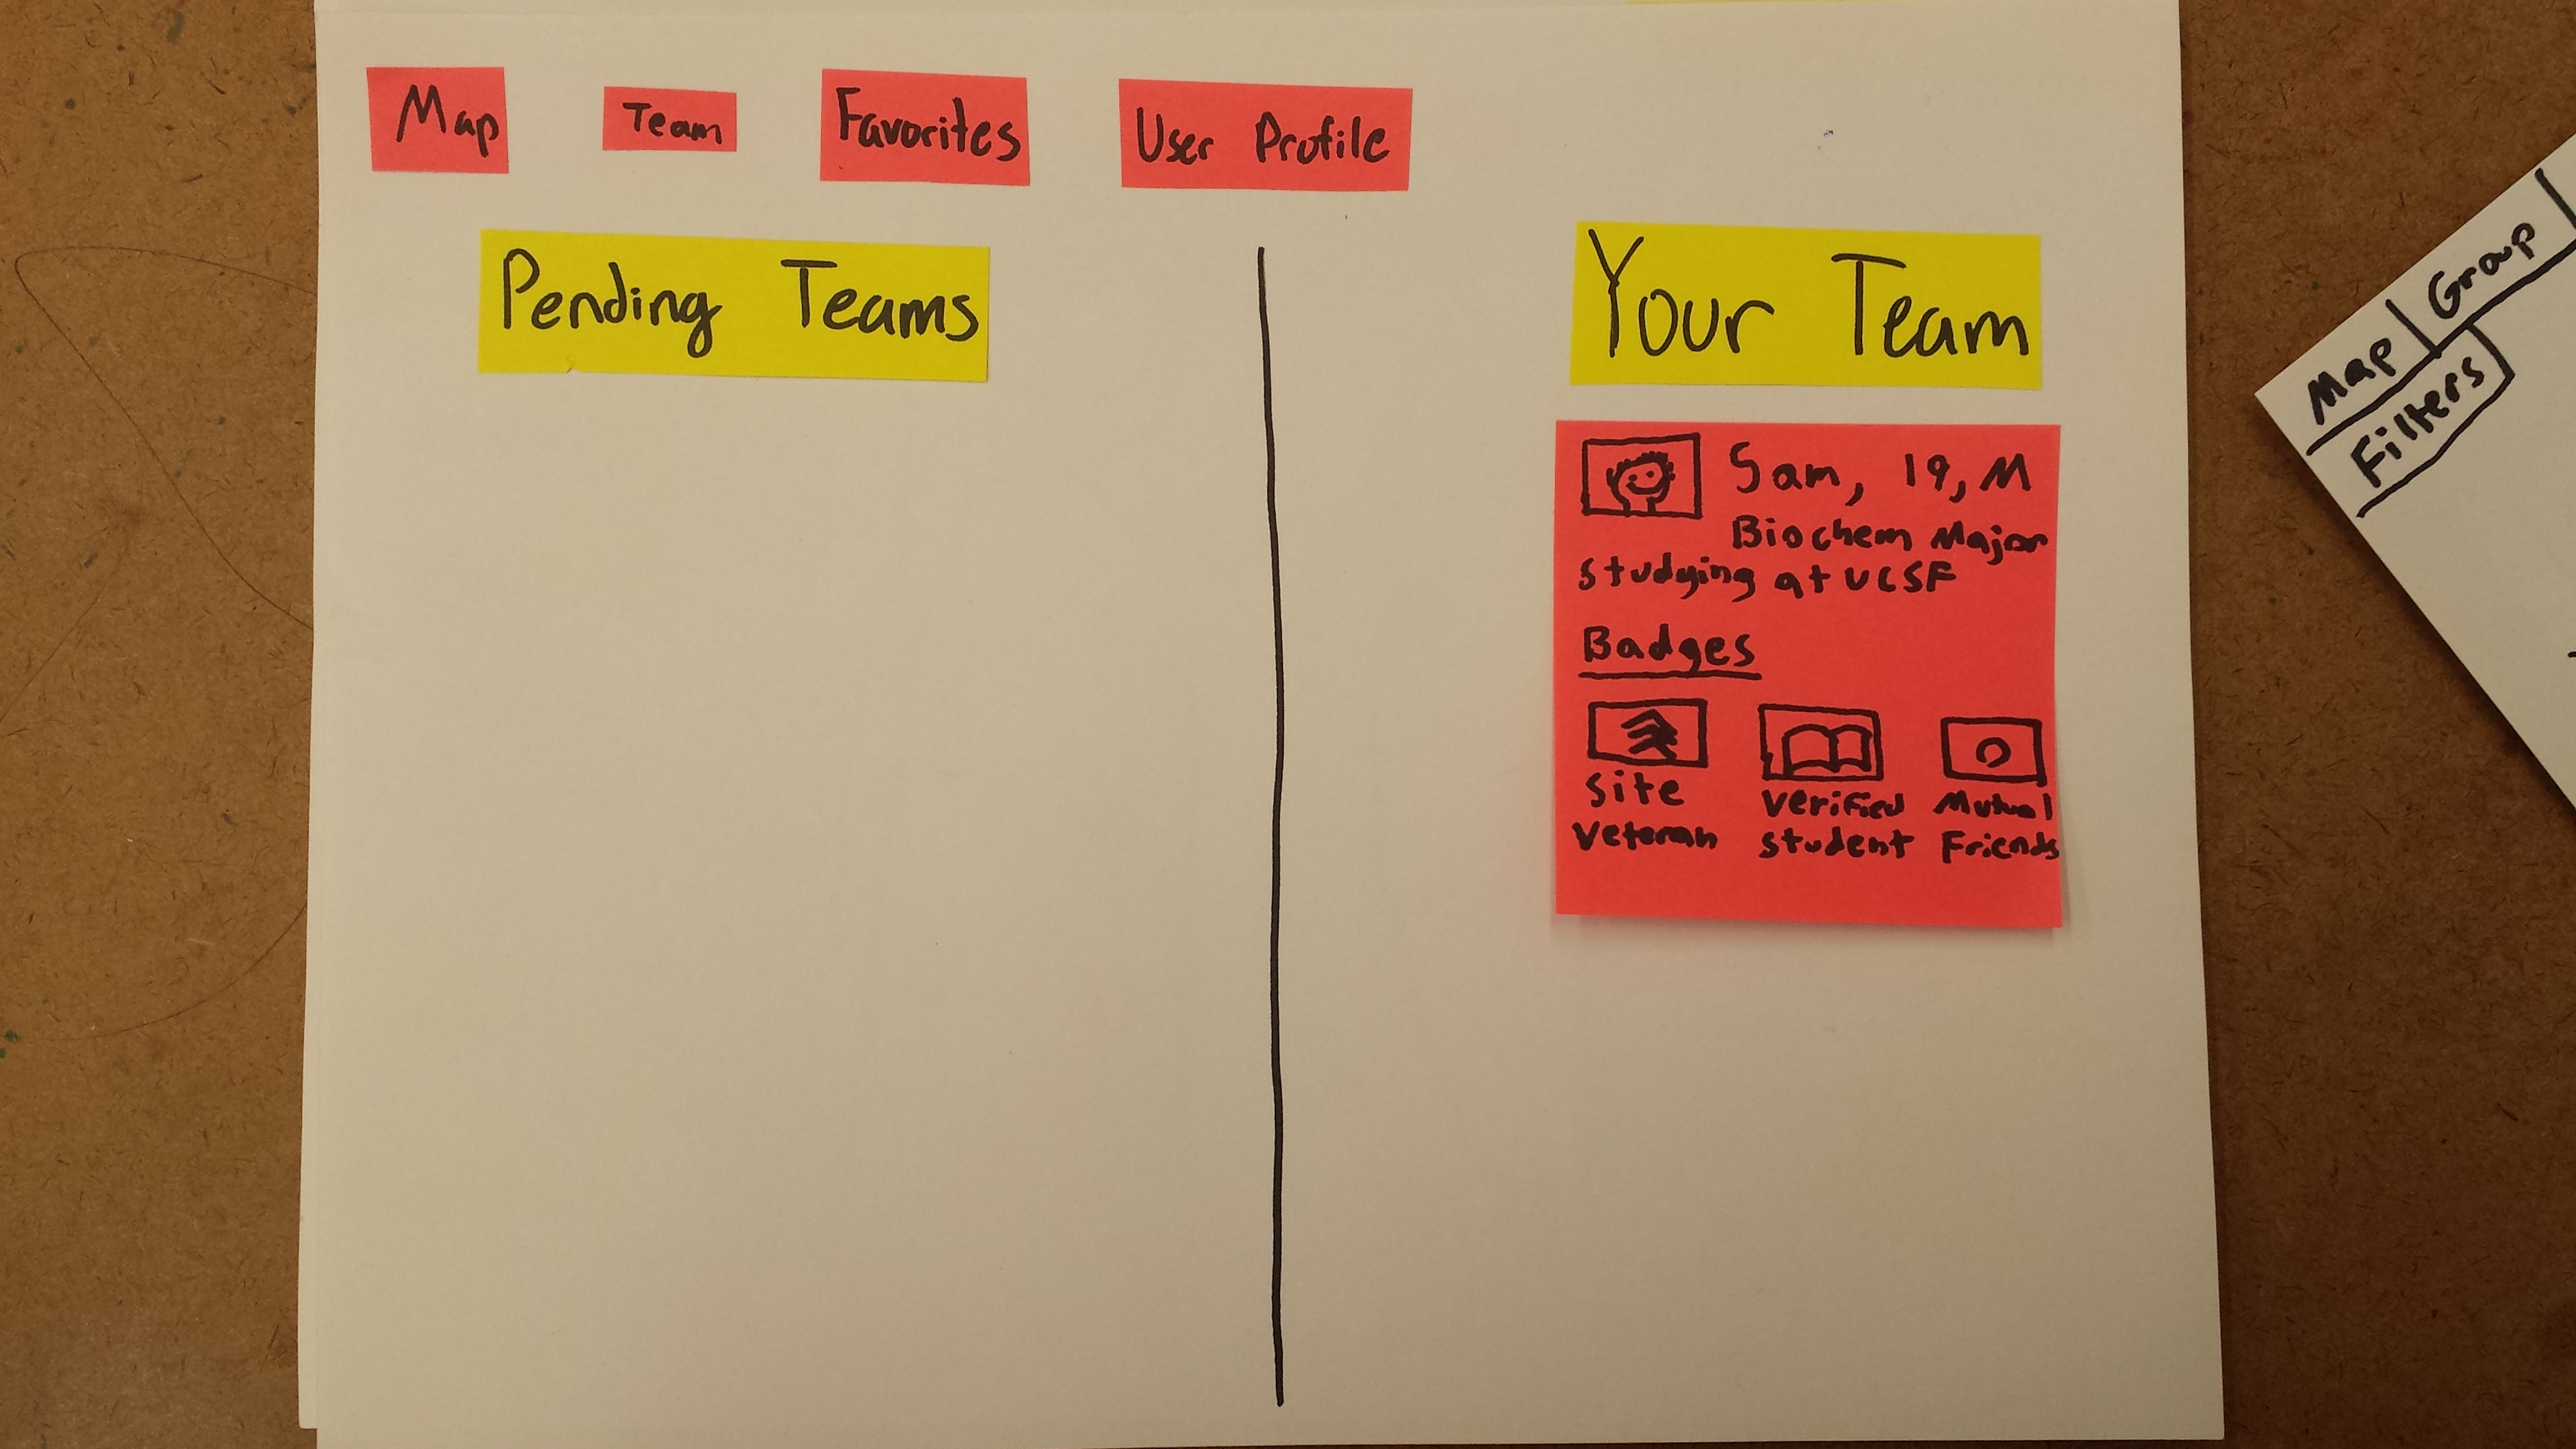 Map
Team
Favorites
User Profile
Pending Teams
Your Team
Sam, 19, M
Biochem Major
studying at UCSF
Badges
Site
Veteran
Verified
student
Mutual
Friends
Map
Group
Filters